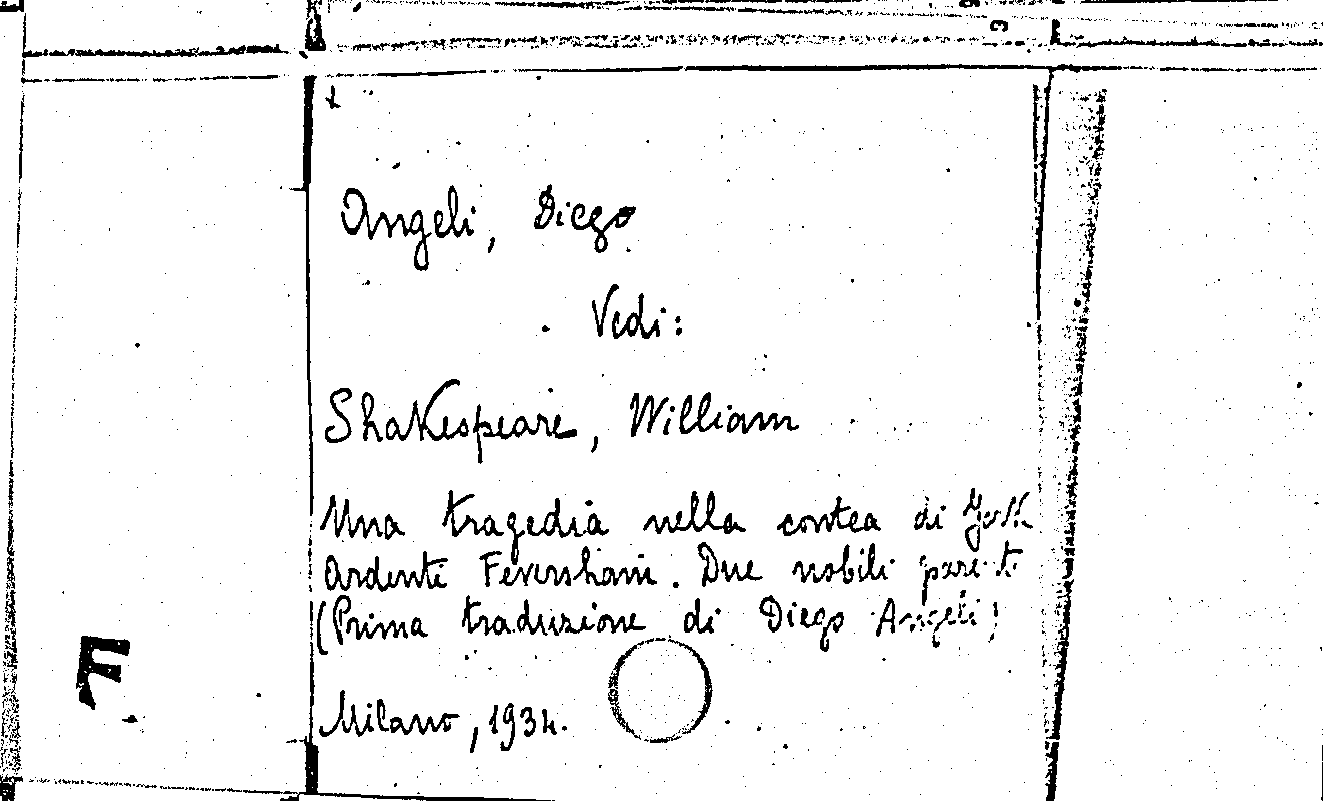 Angeli, Diego
Vedi:
Shakespeare, William
Una tragedia nella contea di York
Ardente Feversham. Due nobili parenti
(Prima traduzione di Diego Angeli)
Milano, 1934.
F